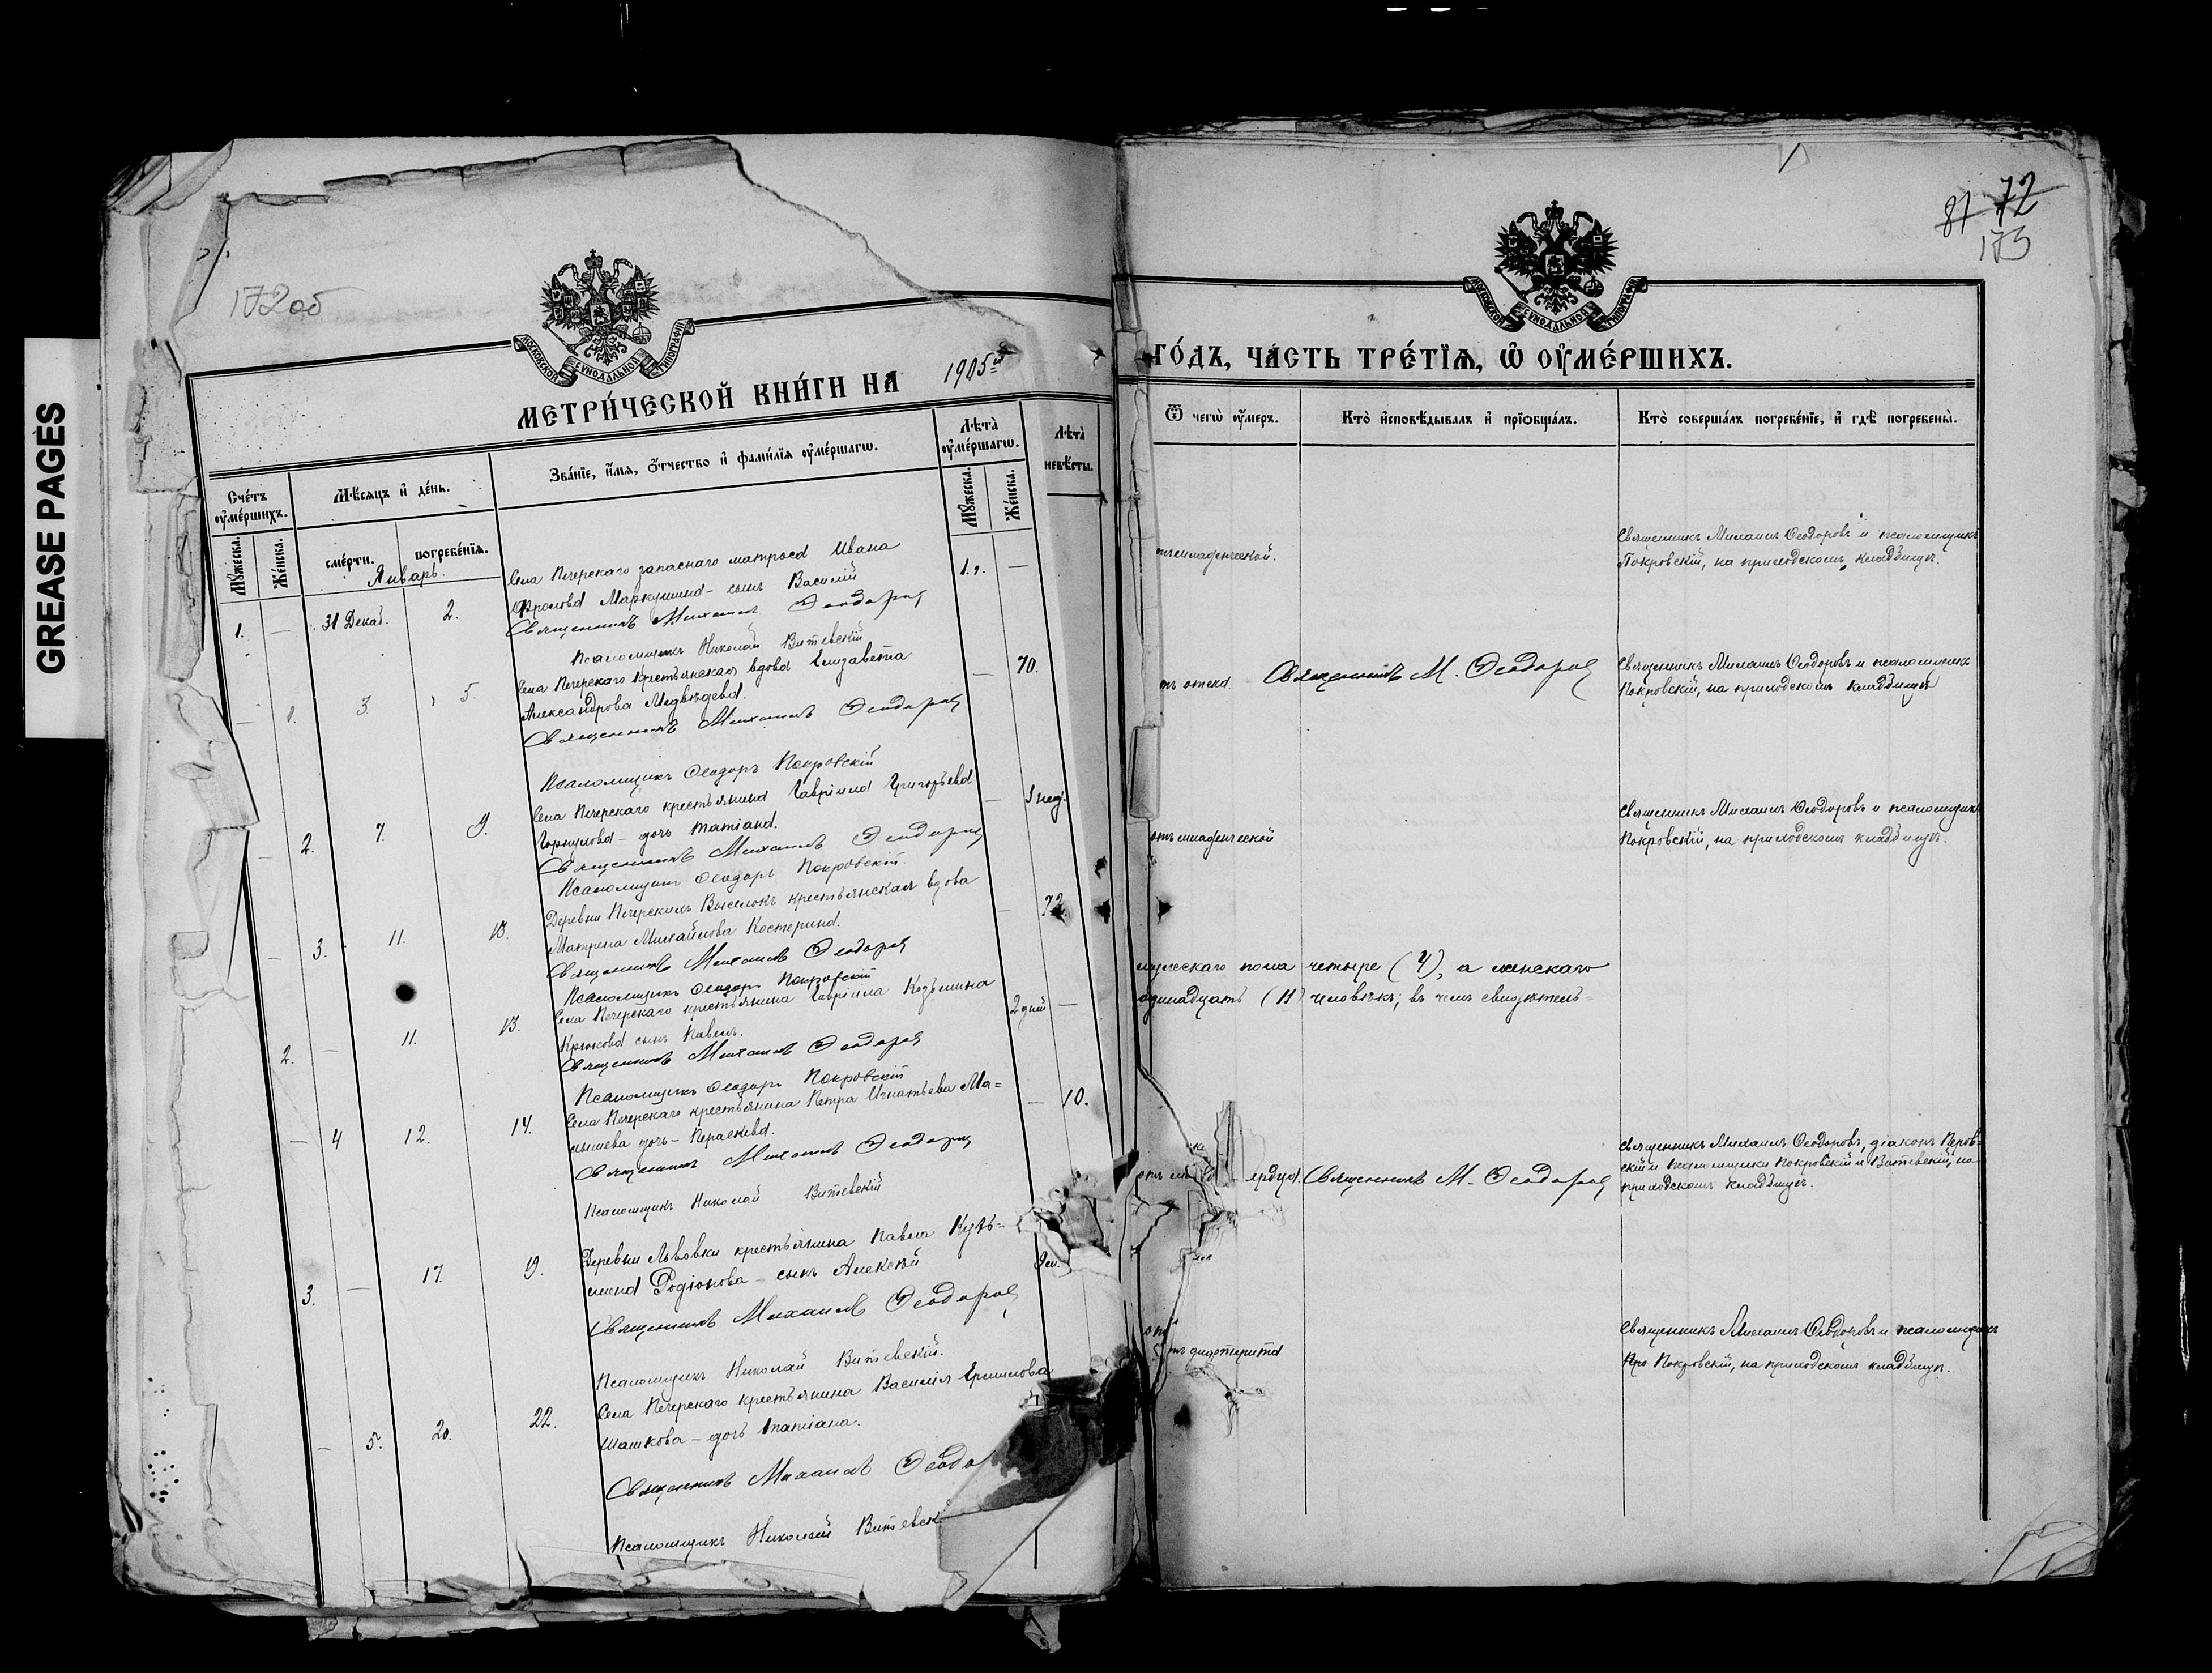 GREASE PAGES
172об
МОСКОВСКОЙ СѴНОДАЛЬНОЙ ТИПОГРАФІИ
МЕТРИ́ЧЕСКОЙ КНИ́ГИ НА 1905й
Сче́тъ ѹ҆ме́ршихъ.
Мѣсяцъ и҆ де́нь.
Зва́нїе, и҆́мѧ, ѻ҆́тчество и҆ фами́лїѧ ѹ҆ме́ршагѡ.
Лѣта̀ ѹ҆ме́ршагѡ.
Лѣта̀
невѣ́сты.
Мꙋ́жеска.
Же́нска.
сме́рти.
погребе́нїѧ.
Мꙋ́жеска.
Же́нска.
Январь.
1. — 31 Декаб. 2. Села Печерскаго запаснаго матроса Ивана 1 г. —
Фролова Маркушина - сынъ Василій
Священникъ Михаилъ Ѳеодоровъ
Псаломщикъ Николай Витевскій
— 1. 3. 5. Села Печерскаго крестьянская вдова Елизавета — 70.
Александрова Медвѣдева.
Священникъ Михаилъ Ѳеодоровъ
Псаломщикъ Ѳеодоръ Покровскій
— 2. 7. 9. Села Печерскаго крестьянина Гавріила Григорьева —
дочь Татіана.
Священникъ Михаилъ Ѳеодоровъ
Псаломщикъ Ѳеодоръ Покровскій.
— 3. 11. 13. Деревни Печерскихъ Выселокъ крестьянская вдова — 72.
Матрена Михайлова Костерина.
Священникъ Михаилъ Ѳеодоровъ
Псаломщикъ Ѳеодоръ Покровскій
2. — 11. 13. Села Печерскаго крестьянина Гавріила Козьмина 2 дней —
Крюкова сынъ Павелъ.
Священникъ Михаилъ Ѳеодоровъ
Псаломщикъ Ѳеодоръ Покровскій
— 4 12. 14. Села Печерскаго крестьянина Петра Игнатьева Ма= — 10.
лышева дочь - Параскева.
Священникъ Михаилъ Ѳеодоровъ
Псаломщикъ Николай Витевскій
3. — 17. 19. Деревни Львовки крестьянина Павла Кузь=
мина Родіонова - сынъ Алексѣй
Священникъ Михаилъ Ѳеодоровъ
Псаломщикъ Николай Витевскій.
— 5. 20. 22. Села Печерскаго крестьянина Василія Ермилова
Шашкова - дочь Татіана.
Священникъ Михаилъ Ѳеодо
Псаломщикъ Николай Витевск
87 72
173
МОСКОВСКОЙ СѴНОДАЛЬНОЙ ТИПОГРАФІИ
ГО́ДЪ, ЧА́СТЬ ТРЕ́ТЇѦ, Ѡ҆ ОУ҆МЕ́РШИХЪ.
Ѿ чегѡ̀ ѹ҆́меръ.
Кто̀ и҆сповѣ́дывалъ и҆ прїѡбща́лъ.
Кто̀ соверша́лъ погребе́нїе, и҆ гдѣ̀ погребены̀.
младенческой.
Священникъ Михаилъ Ѳеодоровъ и псаломщикъ
Покровскій, на приходскомъ кладбищѣ.
отека
Священникъ М. Ѳеодоровъ
Священникъ Михаилъ Ѳеодоровъ и псаломщикъ
Покровскій, на приходскомъ кладбищѣ
отъ младенческой
Священникъ Михаилъ Ѳеодоровъ и псаломщикъ
Покровскій, на приходскомъ кладбищѣ.
мужескаго пола четыре (4), а женскаго
одинадцать (11) человѣкъ; въ чемъ свидѣтель=
Священникъ М. Ѳеодоровъ
Священникъ Михаилъ Ѳеодоровъ, діаконъ Перов=
скій и псаломщики Покровскій и Витевскій, на
приходскомъ кладбищѣ.
дифтерита
Священникъ Михаилъ Ѳеодоровъ и псаломщикъ
Покровскій, на приходскомъ кладбищѣ.